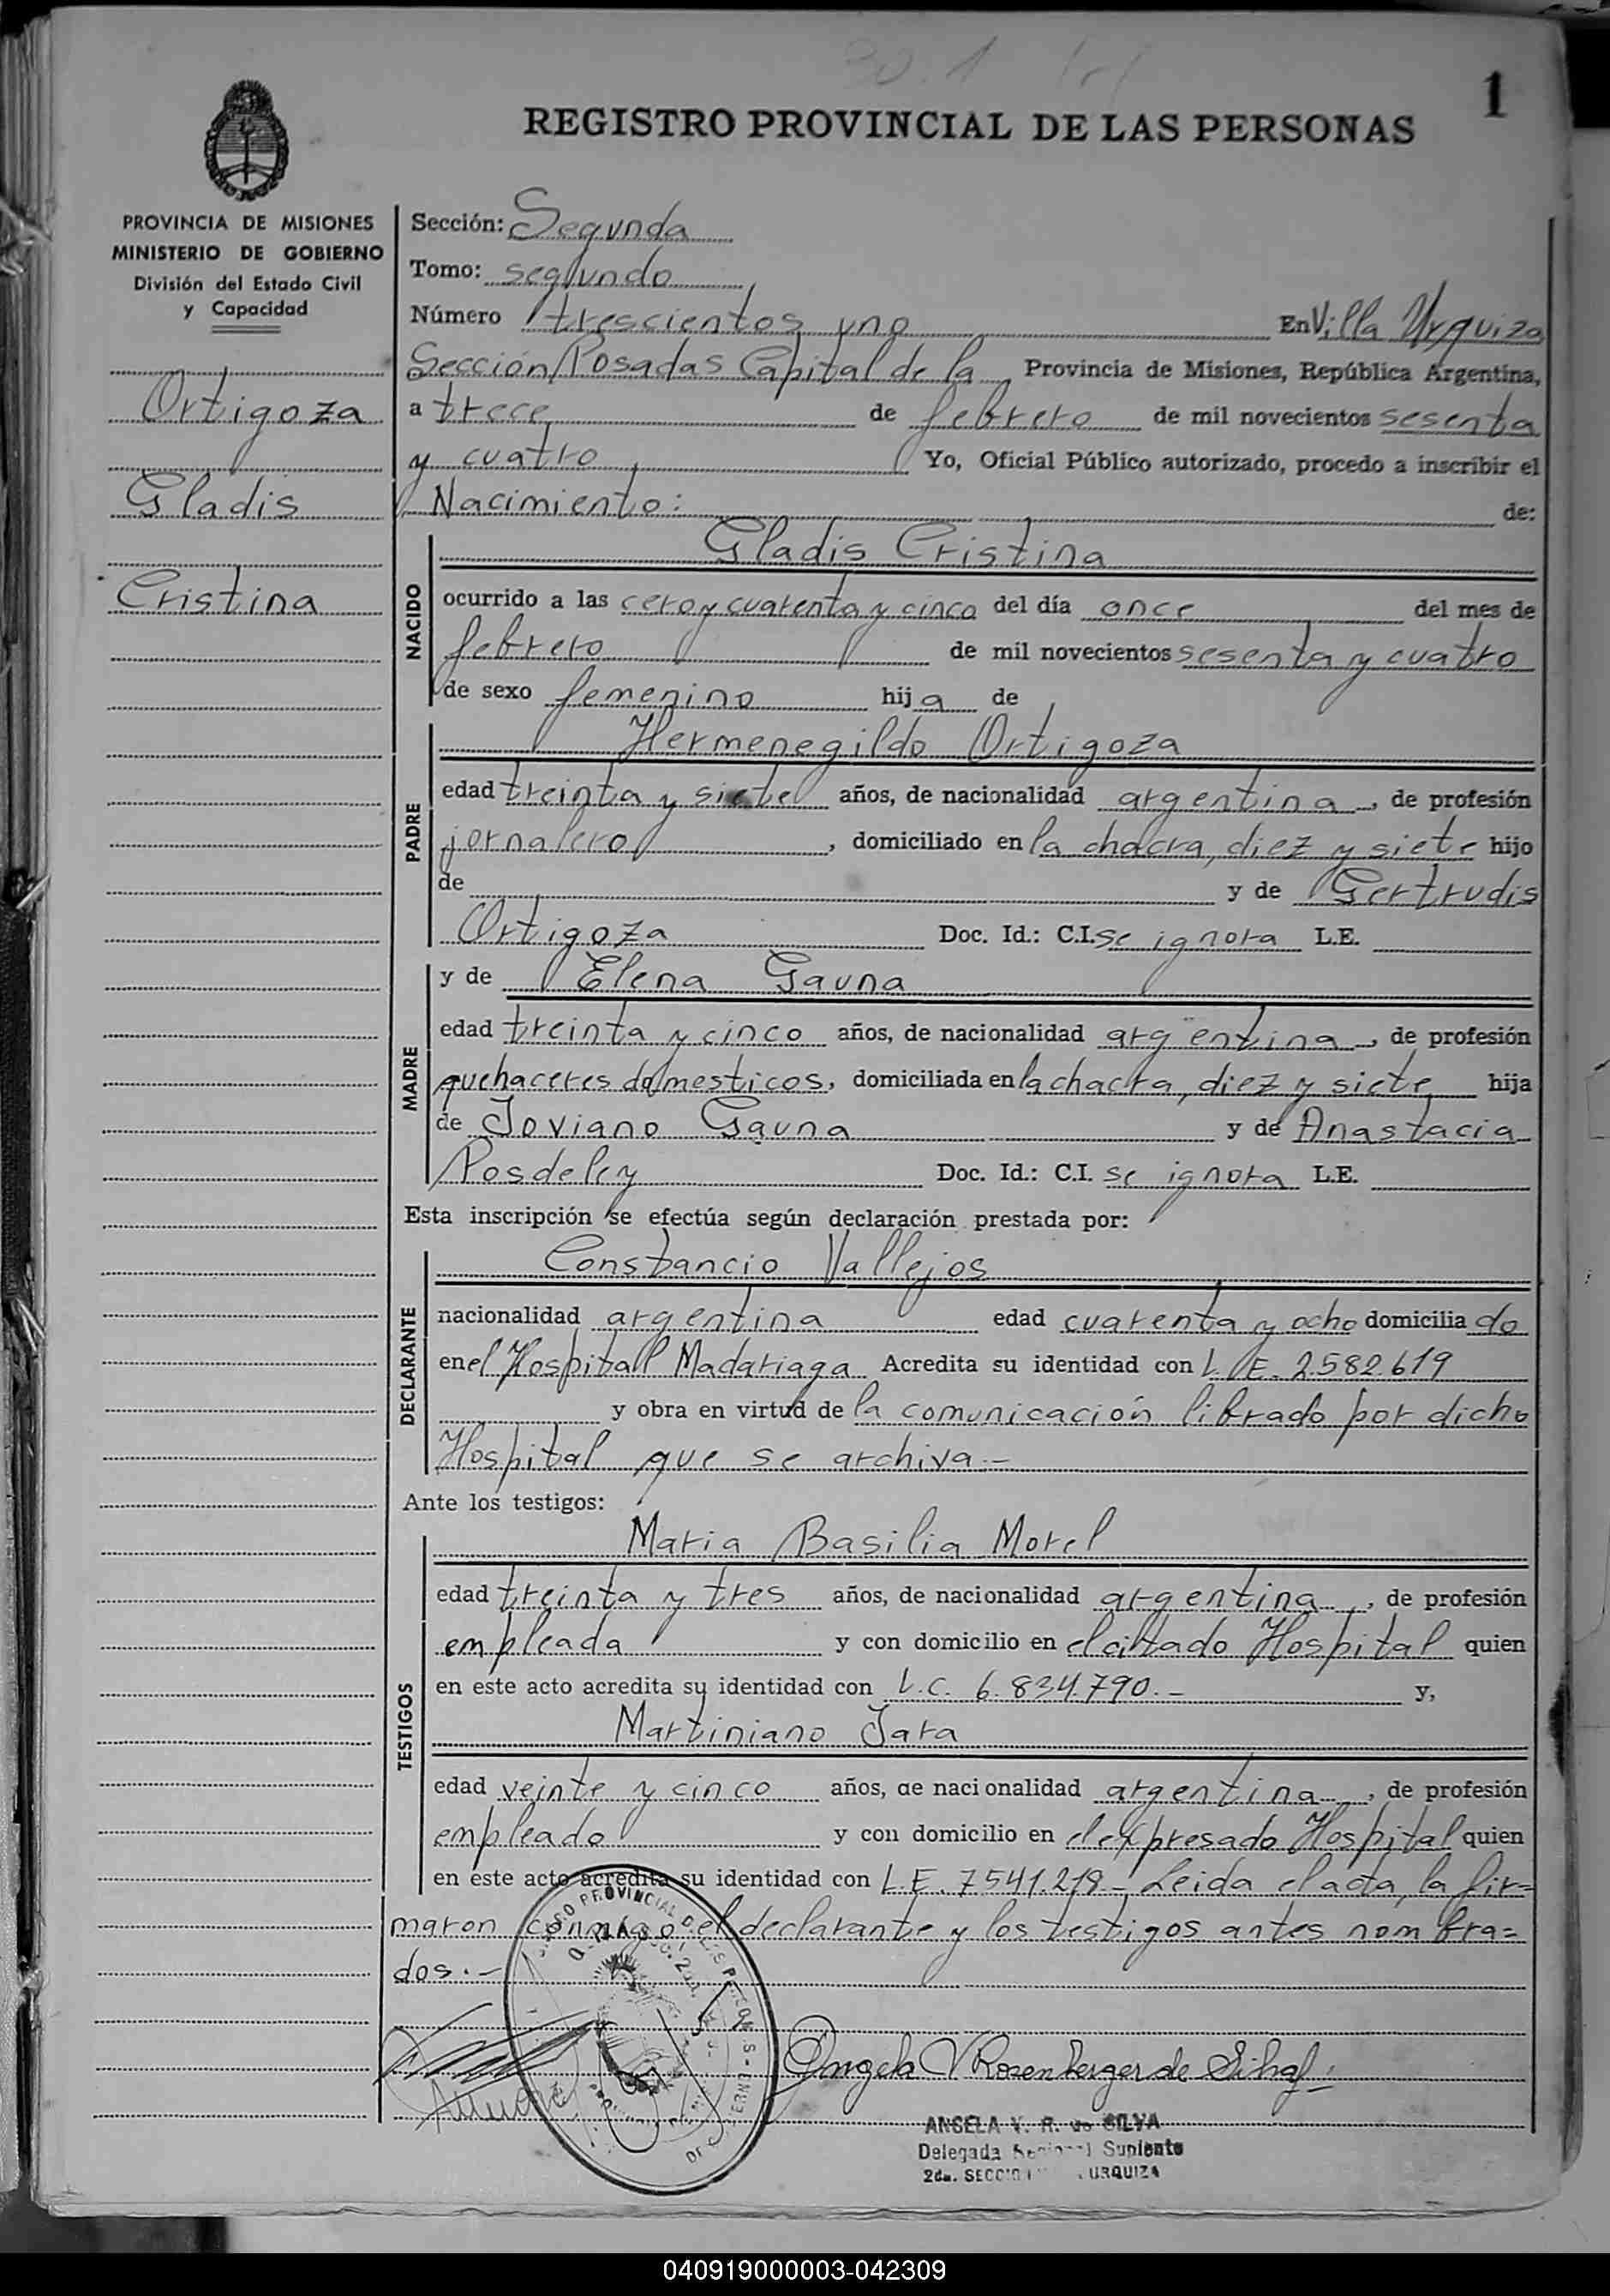 1
REGISTRO PROVINCIAL DE LAS PERSONAS
PROVINCIA DE MISIONES
MINISTERIO DE GOBIERNO
División del Estado Civil
y Capacidad
Ortigoza
Gladis
Cristina
Sección: Segunda
Tomo: segundo
Número trescientos uno En Villa Urquiza
Sección Posadas Capital de la Provincia de Misiones, República Argentina,
a trece de febrero de mil novecientos sesenta
y cuatro Yo, Oficial Público autorizado, procedo a inscribir el
Nacimiento: de:
NACIDO
Gladis Cristina
ocurrido a las cero y cuarenta y cinco del día once del mes de
febrero de mil novecientos sesenta y cuatro
de sexo femenino hija de
PADRE
Hermenegildo Ortigoza
edad treinta y siete años, de nacionalidad argentina, de profesión
jornalero, domiciliado en la chacra, diez y siete hijo
de y de Gertrudis
Ortigoza Doc. Id.: C.I. se ignora L.E.
MADRE
y de Elena Gauna
edad treinta y cinco años, de nacionalidad argentina, de profesión
quehaceres domesticos, domiciliada en la chacra, diez y siete hija
de Joviano Gauna y de Anastacia
Posdeley Doc. Id.: C.I. se ignora L.E.
Esta inscripción se efectúa según declaración prestada por:
DECLARANTE
Constancio Vallejos
nacionalidad argentina edad cuarenta y ocho domiciliado
en el Hospital Madariaga Acredita su identidad con L.E. 2.582.619
y obra en virtud de la comunicación librado por dicho
Hospital que se archiva.-
Ante los testigos:
TESTIGOS
Maria Basilia Morel
edad treinta y tres años, de nacionalidad argentina, de profesión
empleada y con domicilio en el citado Hospital quien
en este acto acredita su identidad con L.C. 6.834.790.- y,
Martiniano Jara
edad veinte y cinco años, de nacionalidad argentina, de profesión
empleado y con domicilio en el expresado Hospital quien
en este acto acredita su identidad con L.E. 7541.218.- Leida el acta, la fir=
maron conmigo el declarante y los testigos antes nombra=
dos.-
Angela V Rosenberger de Silva
ANGELA V. R. de SILVA
Delegada Regional Suplente
2da. SECCION URQUIZA
040919000003-042309